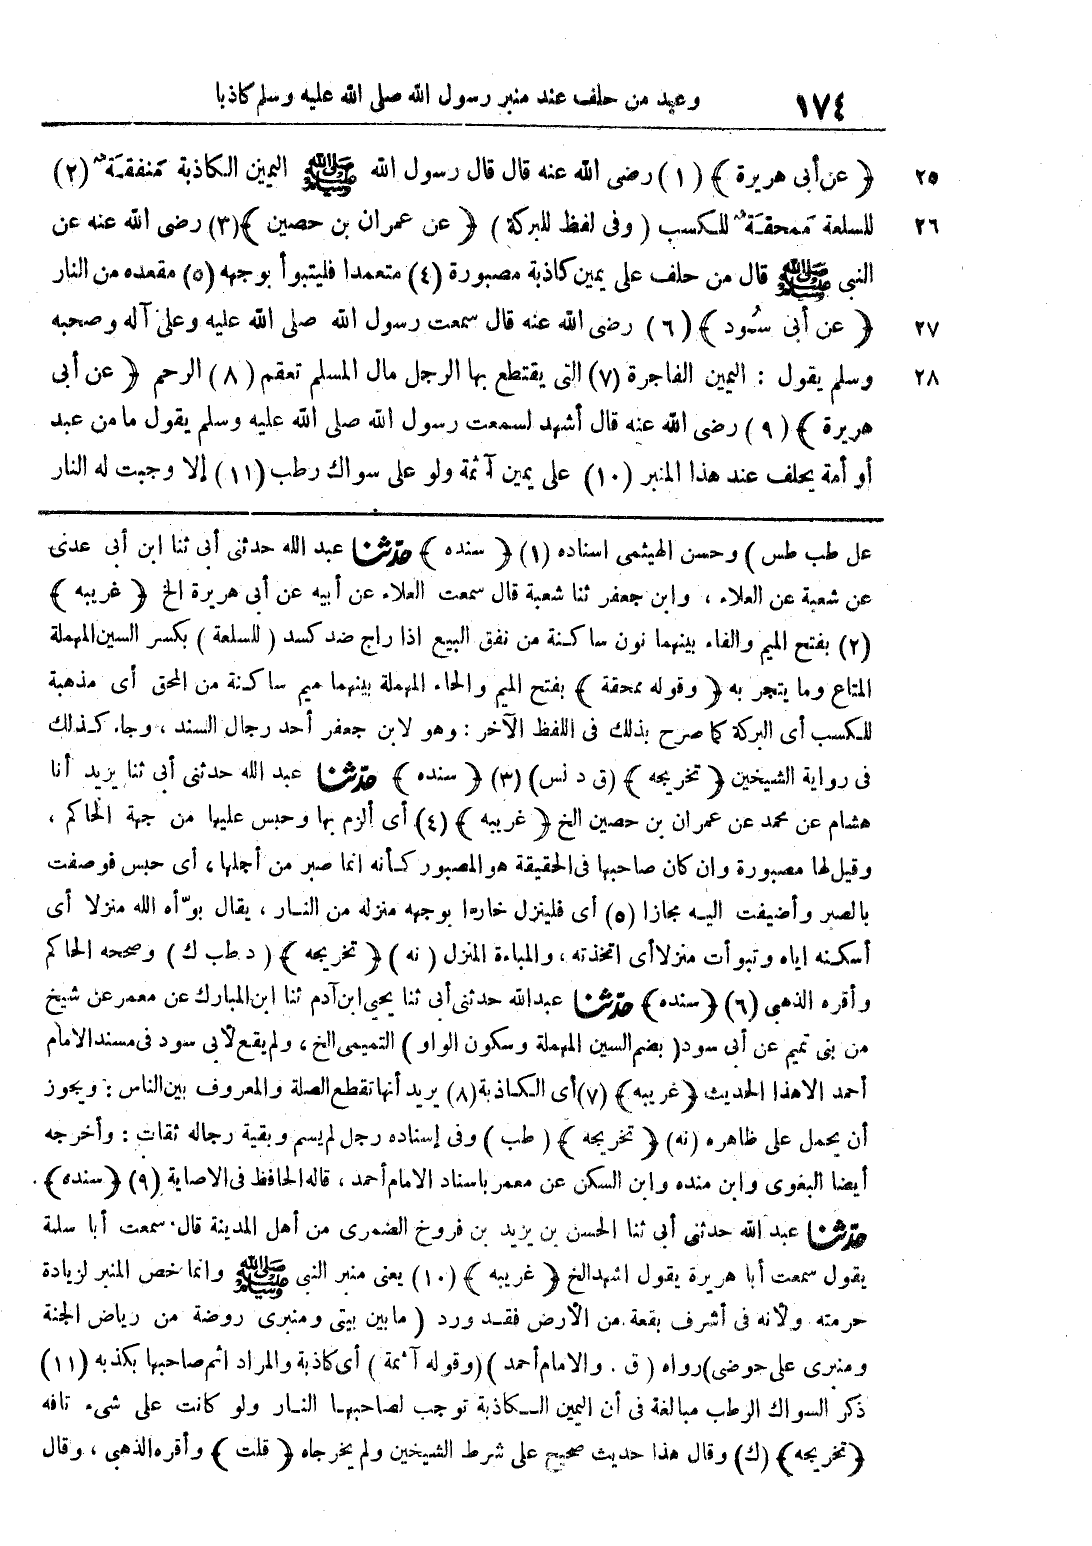 ١٧٤ وعيد من حلف عند منبر رسول الله صلى الله عليه وسلم كاذبا
٢٥ ﴿ عن أبى هريرة ﴾ (١) رضى الله عنه قال قال رسول الله ﷺ اليمين الكاذبة مَنفقَة (٢)
٢٦ للسلعة مَمحقَة للكسب ( وفى لفظ للبركة ) ﴿ عن عمران بن حصين ﴾(٣) رضى الله عنه عن
النبى ﷺ قال من حلف على يمين كاذبة مصبورة (٤) متعمدا فليتبوأ بوجهه (٥) مقعده من النار
٢٧ ﴿ عن أبى سُود ﴾(٦) رضى الله عنه قال سمعت رسول الله صلى الله عليه وعلى آله وصحبه
٢٨ وسلم يقول : اليمين الفاجرة (٧) التى يقتطع بها الرجل مال المسلم تعقم (٨) الرحم ﴿ عن أبى
هريرة ﴾ (٩) رضى الله عنه قال أشهد لسمعت رسول الله صلى الله عليه وسلم يقول مامن عبد
أو أمة يحلف عند هذا المنبر (١٠) على يمين آثمة ولو على سواك رطب (١١) إلا وجبت له النار
عل طب طس ) وحسن الهيثمى اسناده (١) ﴿ سنده ﴾ حدّثنا عبد الله حدثنى أبى ثنا ابن أبى عدى
عن شعبة عن العلاء ، وابن جعفر ثنا شعبة قال سمعت العلاء عن أبيه عن أبى هريرة الخ ﴿ غريبه ﴾
(٢) بفتح الميم والفاء بينهما نون ساكنة من نفق البيع اذا راج ضد كسد ( للسلعة ) بكسر السين المهملة
المتاع وما يتجر به ﴿ وقوله ممحقة ﴾ بفتح الميم والحاء المهملة بينهما ميم ساكنة من المحق أى مذهبة
للكسب أى البركة كما صرح بذلك فى اللفظ الآخر : وهو لابن جعفر أحد رجال السند ، وجاء كذلك
فى رواية الشيخين ﴿ تخريجه ﴾ (ق د نس) (٣) ﴿ سنده ﴾ حدّثنا عبد الله حدثنى أبى ثنا يزيد أنا
هشام عن محمد عن عمران بن حصين الخ ﴿ غريبه ﴾ (٤) أى ألزم بها وحبس عليها من جهة الحاكم ،
وقيل لها مصبورة وان كان صاحبها فى الحقيقة هو المصبور كأنه انما صبر من أجلها ، أى حبس فوصفت
بالصبر وأضيفت اليه مجازا (٥) أى فلينزل خاررا بوجهه منزله من النار ، يقال بوّأه الله منزلا أى
أسكنه اياه وتبوأت منزلا أى اتخذته ، والمباءة المنزل ( نه ) ﴿ تخريجه ﴾ ( د طب ك ) وصححه الحاكم
وأقره الذهبى (٦) ﴿ سنده ﴾ حدّثنا عبدالله حدثنى أبى ثنا يحيى ابن آدم ثنا ابن المبارك عن معمر عن شيخ
من بنى تميم عن أبى سود ( بضم السين المهملة وسكون الواو ) التميمى الخ ، ولم يقع لأبى سود فى مسند الامام
أحمد الا هذا الحديث ﴿ غريبه ﴾ (٧) أى الكاذبة (٨) يريد أنها تقطع الصلة والمعروف بين الناس : ويجوز
أن يحمل على ظاهره (نه) ﴿ تخريجه ﴾ ( طب ) وفى إسناده رجل لم يسم وبقية رجاله ثقات : وأخرجه
أيضا البغوى وابن منده وابن السكن عن معمر باسناد الامام أحمد ، قاله الحافظ فى الاصابة (٩) ﴿ سنده ﴾.
حدّثنا عبد الله حدثنى أبى ثنا الحسن بن يزيد بن فروخ الضمرى من أهل المدينة قال سمعت أبا سلمة
يقول سمعت أبا هريرة يقول اشهد الخ ﴿ غريبه ﴾ (١٠) يعنى منبر النبى ﷺ وانما خص المنبر لزيادة
حرمته ولأنه فى أشرف بقعة من الأرض فقد ورد ( مابين بيتى ومنبرى روضة من رياض الجنة
ومنبرى على حوضى) رواه ( ق . والامام أحمد ) (وقوله آثمة ) أى كاذبة والمراد اثم صاحبها بكذبه (١١)
ذكر السواك الرطب مبالغة فى أن اليمين الكاذبة توجب لصاحبها النار ولو كانت على شىء تافه
﴿ تخريجه ﴾ (ك) وقال هذا حديث صحيح على شرط الشيخين ولم يخرجاه ﴿ قلت ﴾ وأقره الذهبى ، وقال